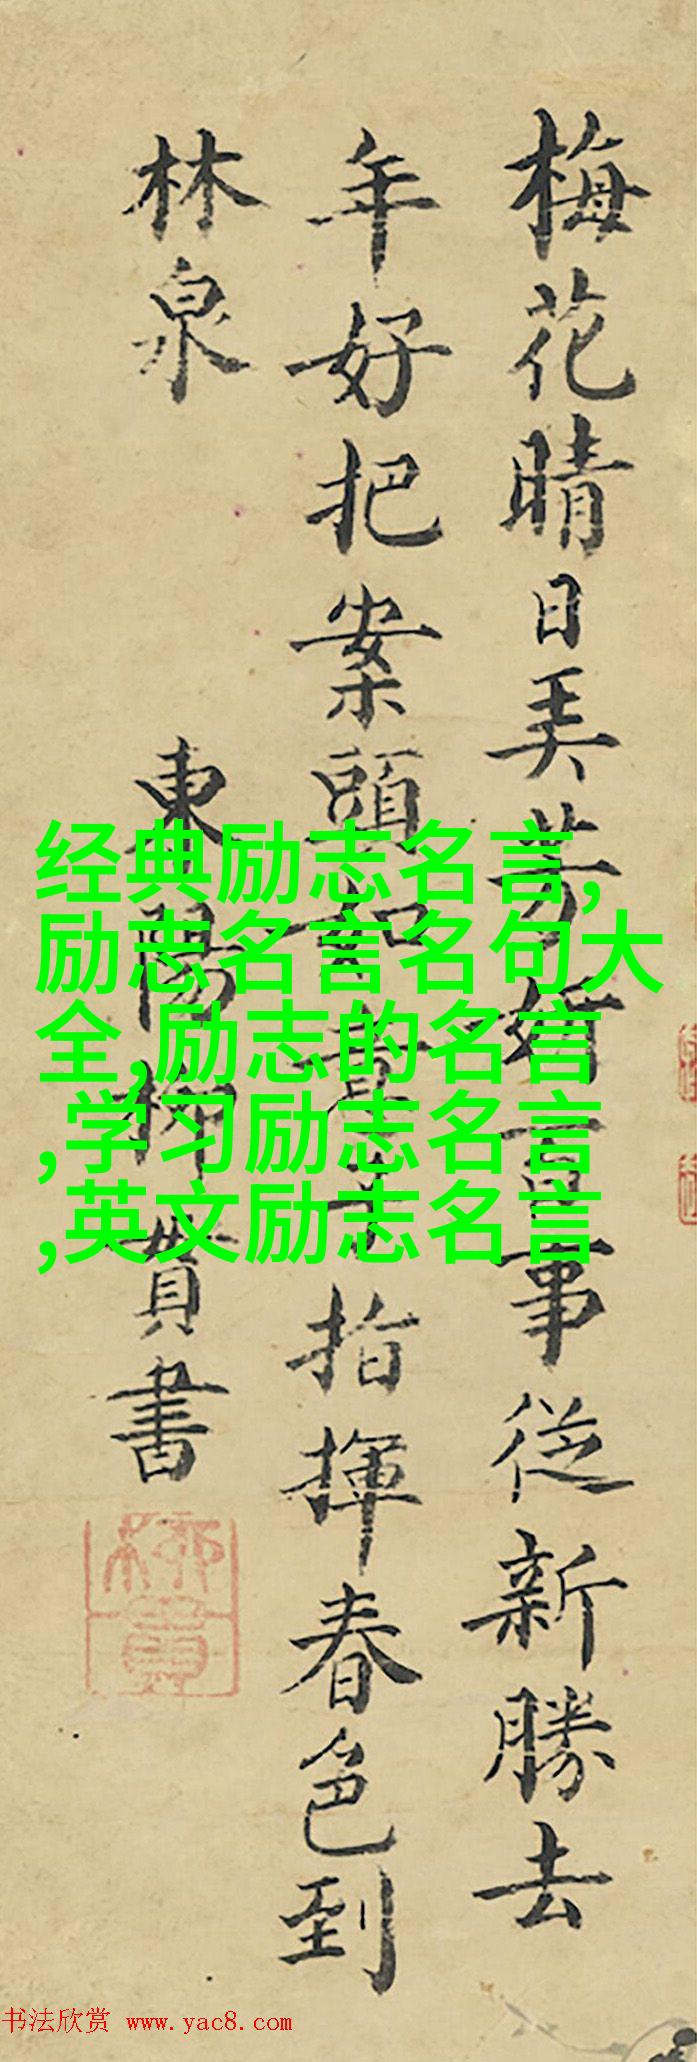 梅花晴日美芳妍百事從新勝去
年好把案頭如意子指揮春色到
林泉
東陽柳貫書
柳貫
经典励志名言,
励志名言名句大
全,励志的名言
,学习励志名言
,英文励志名言
书法欣赏 www.yac8.com